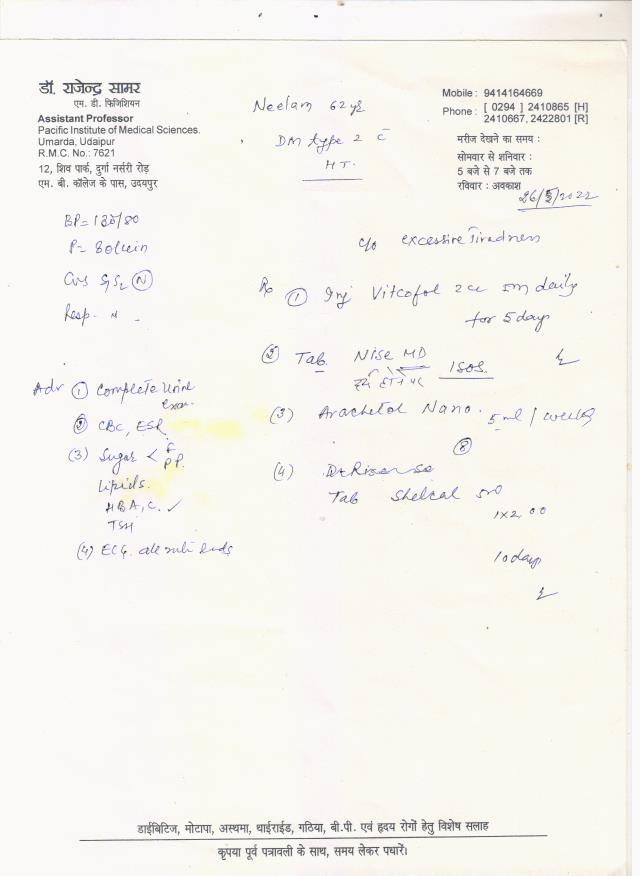 डॉ. राजेन्द्र सामर
एम. डी. फिजिशियन
Assistant Professor
Pacific Institute of Medical Sciences.
Umarda, Udaipur
R.M.C. No.: 7621
12, शिव पार्क, दुर्गा नर्सरी रोड़
एम. बी. कॉलेज के पास, उदयपुर
Neelam 62 yr
DM type 2 c̄
HT.
Mobile : 9414164669
Phone : [ 0294 ] 2410865 [H]
2410667, 2422801 [R]
मरीज देखने का समय :
सोमवार से शनिवार :
5 बजे से 7 बजे तक
रविवार : अवकाश
26/5/2022
BP = 130/80
P = 80/min
CVS S1S2 (N)
Resp. N
c/o excessive Tiredness
Rx (1) Inj Vitcofol 2cc daily
for 5 days
(2) Tab. Nise MD SOS.
दर्द होने पर
(3) Arachitol Nano. 5ml / weekly
(8)
(4)
Tab Shelcal 500
1x2
10 days
Adv (1) Complete Urine
Exam.
(2) CBC, ESR
(3) Sugar < F
PP.
Lipids.
HBA1C. ✓
TSH
(4) ECG. all leads
डाईबिटिज, मोटापा, अस्थमा, थाईराईड, गठिया, बी.पी. एवं हृदय रोगों हेतु विशेष सलाह
कृपया पूर्व पत्रावली के साथ, समय लेकर पधारें।